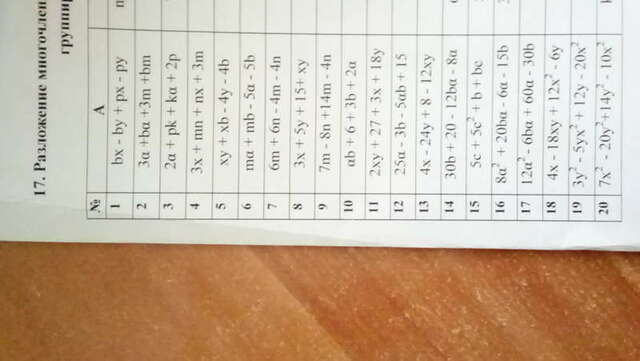 17. Разложение многочлен
группир
№ А
1 bx - by + px - py
2 3a +ba +3m +bm
3 2a + pk + ka + 2p
4 3x + mn + nx + 3m
5 xy + xb - 4y - 4b
6 ma + mb - 5a - 5b
7 6m + 6n - 4m - 4n
8 3x + 5y + 15 + xy
9 7m - 8n +14m - 4n
10 ab + 6 + 3b + 2a
11 2xy + 27 + 3x + 18y
12 25a - 3b - 5ab + 15
13 4x - 24y + 8 - 12xy
14 30b + 20 - 12ba - 8a
15 5c + 5c² + b + bc
16 8a² + 20ba - 6a - 15b
17 12a² - 6ba + 60a - 30b
18 4x - 18xy + 12x² - 6y
19 3y² - 5yx² + 12y - 20x²
20 7x² - 20y²+14y² - 10x²